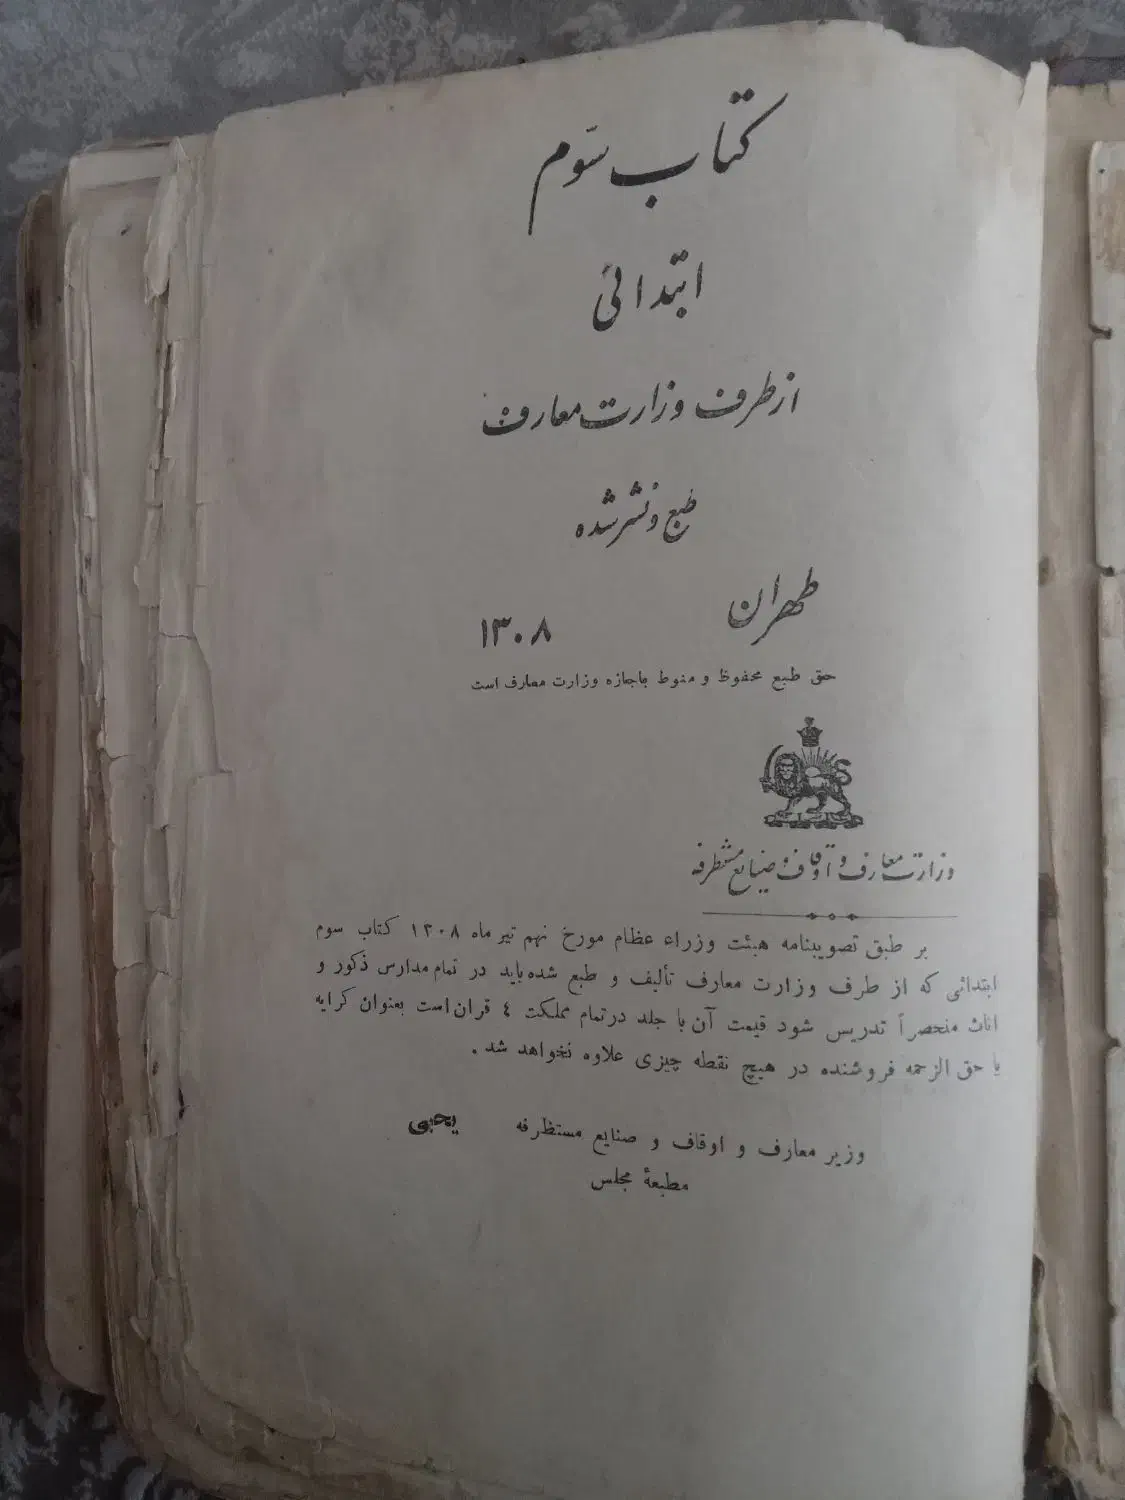 کتاب سوّم
ابتدائی
از طرف وزارت معارف
طبع و نشر شده
طهران
۱۳۰۸
حق طبع محفوظ و منوط باجازه وزارت معارف است
وزارت معارف و اوقاف و صنایع مستظرفه
بر طبق تصویبنامه هیئت وزراء عظام مورخ نهم تیر ماه ۱۳۰۸ کتاب سوم
ابتدائی که از طرف وزارت معارف تألیف و طبع شده باید در تمام مدارس ذکور و
اناث منحصراً تدریس شود قیمت آن با جلد در تمام مملکت ٤ قران است بعنوان کرایه
یا حق الزحمه فروشنده در هیچ نقطه چیزی علاوه نخواهد شد .
وزیر معارف و اوقاف و صنایع مستظرفه یحیی
مطبعهٔ مجلس